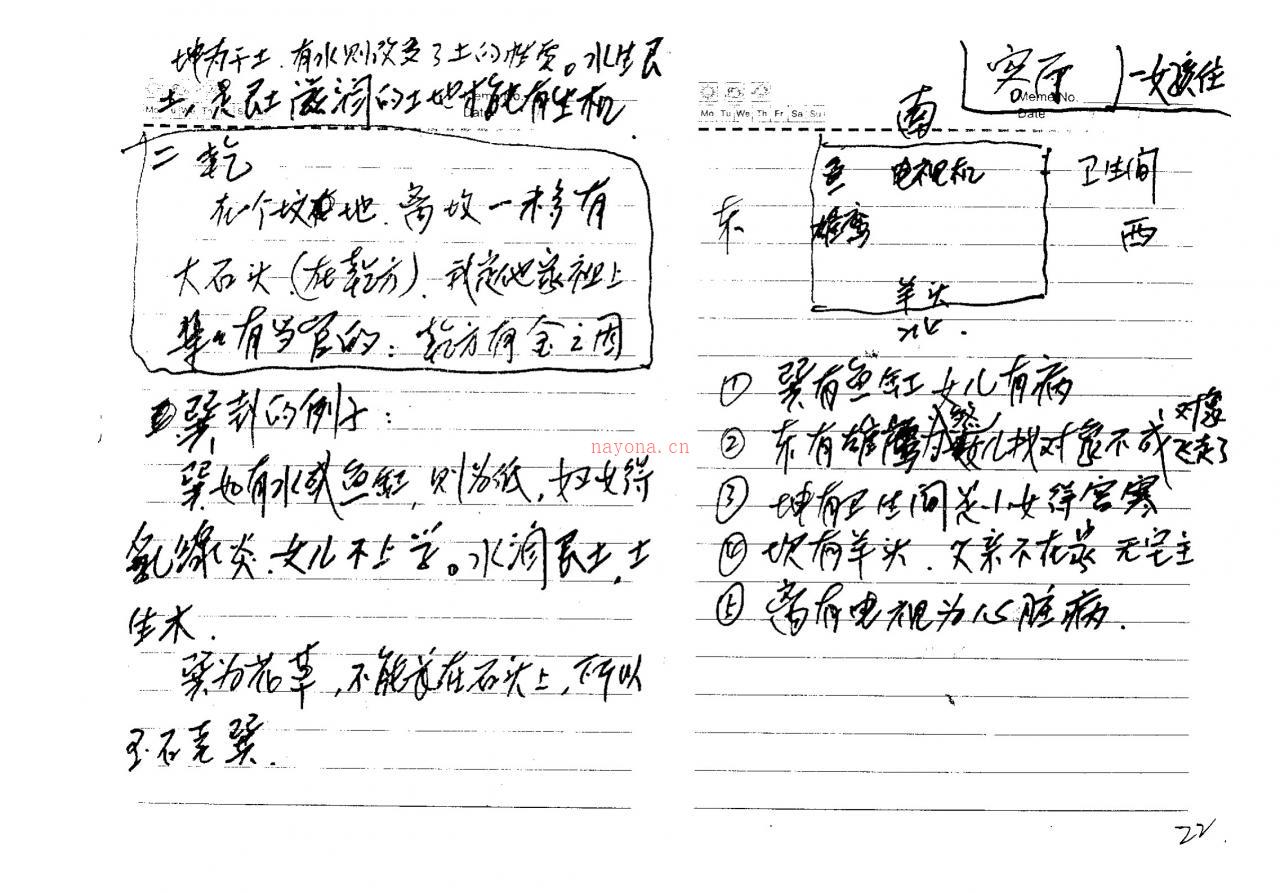 坤为干土，有水则改变了土的性质。水生艮
土，是艮土滋润的土地才能有生机
二乾
在个坟墓地，离坟一米多有
大石头（在乾方），我定他家祖上
有当官的：乾方有金之因
巽卦的例子：
巽如有水或鱼缸，则为低，妇女得
乳腺炎、女儿不上学。水润艮土，土
生木．
巽为花草，不能养在石头上，所以
玉石克巽．
Mo Tu We Th Fr Sa Su
Memo No.
Date
客厅 一女孩住
南
鱼 电视机 卫生间
东 雄鹰 西
羊头
北．
① 巽有鱼缸 女儿有病
② 东有雄鹰为煞 女儿找对象不成 对象飞走了
③ 坤有卫生间是小女得宫寒
④ 坎有羊头．父亲不在家 无宅主
⑤ 离有电视为心脏病．
nayona.cn
22